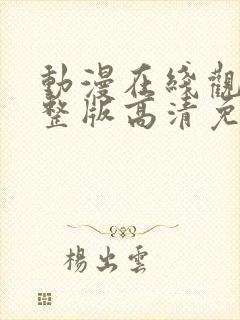 動漫在綫觀
整版高清免
楊出雲